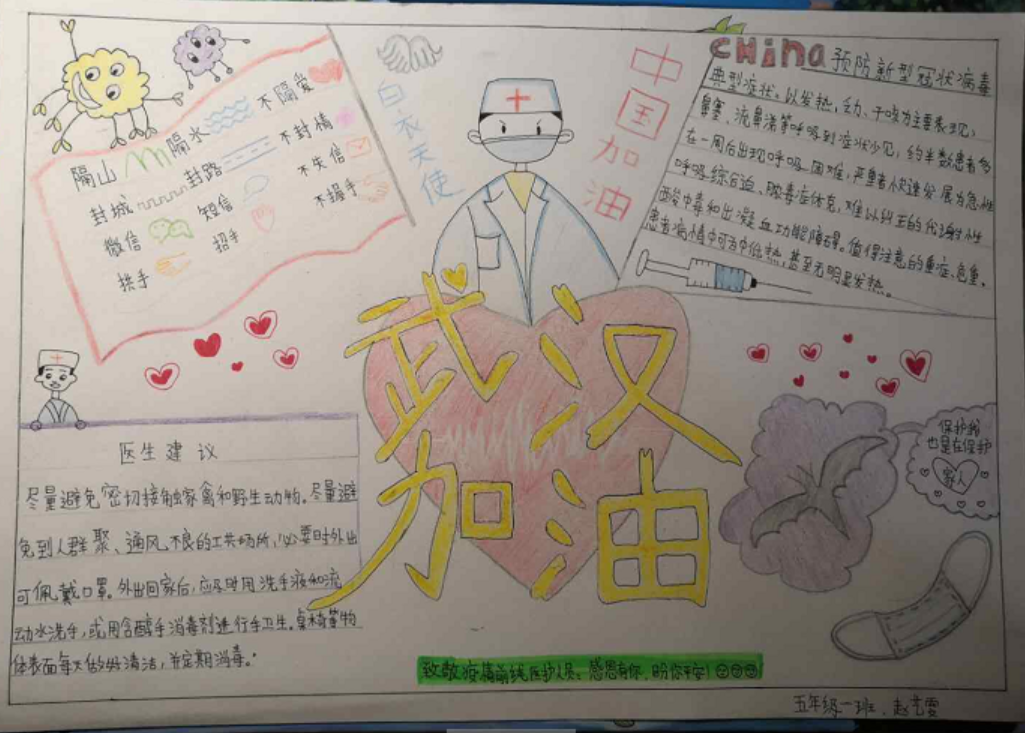 隔山 隔水 不隔爱
封城 封路 不封情
微信 短信 不失信
拱手 招手 不握手
白衣天使
中国加油
CHina 预防新型冠状病毒
典型症状：以发热，乏力、干咳为主要表现；
鼻塞、流鼻涕等呼吸道症状少见，约半数患者多
在一周后出现呼吸困难，严重者快速发展为急性
呼吸综合迫、脓毒症休克，难以纠正的代谢性
酸中毒和出凝血功能障碍。值得注意的重症、危重，
患者病情中可为中低热，甚至无明显发热。
武汉
加油
医生建议
尽量避免密切接触家禽和野生动物。尽量避
免到人群聚、通风不良的工共场所，必要时外出
可佩戴口罩。外出回家后，应及时用洗手液和流
动水洗手，或用含醇手消毒剂进行手卫生。桌椅等物
体表面每天做好清洁，并定期消毒。
保护我
也是在保护
家人
致敬疫情前线医护人员：感恩有你，盼你平安！
五年级一班